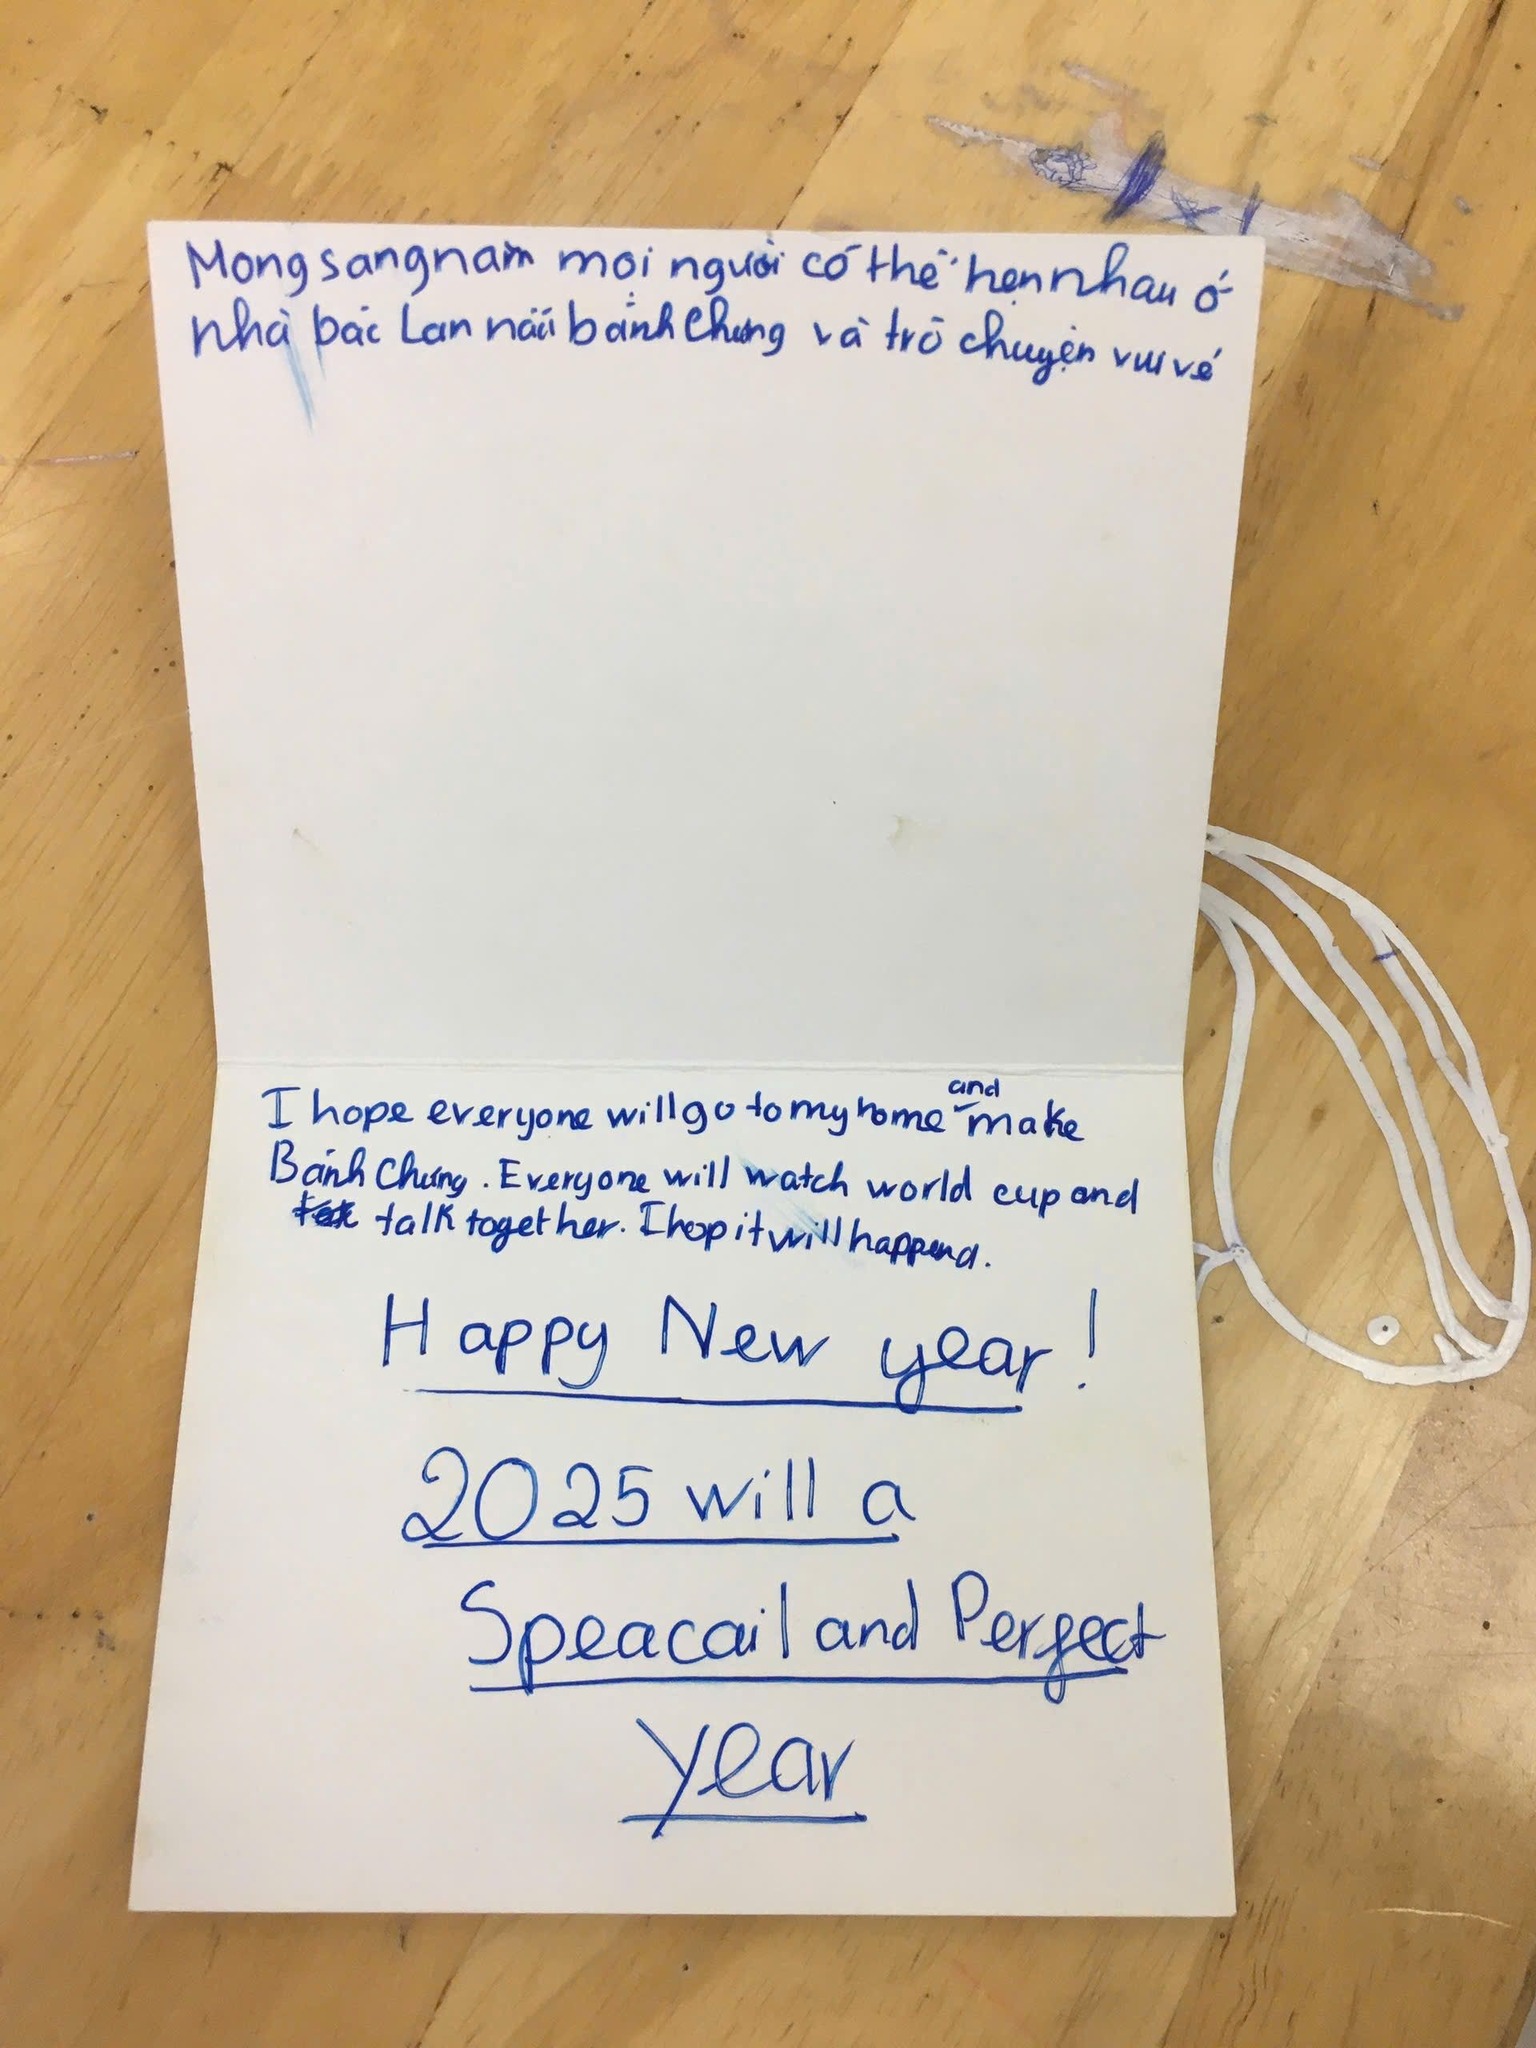 Mong sang năm mọi người có thể hẹn nhau ở
nhà bác Lan nấu bánh Chưng và trò chuyện vui vẻ
I hope everyone will go to my home and make
Bánh Chưng. Everyone will watch world cup and
talk together. I hop it will happend.
Happy New year!
2025 will a
Speacail and Perfect
year